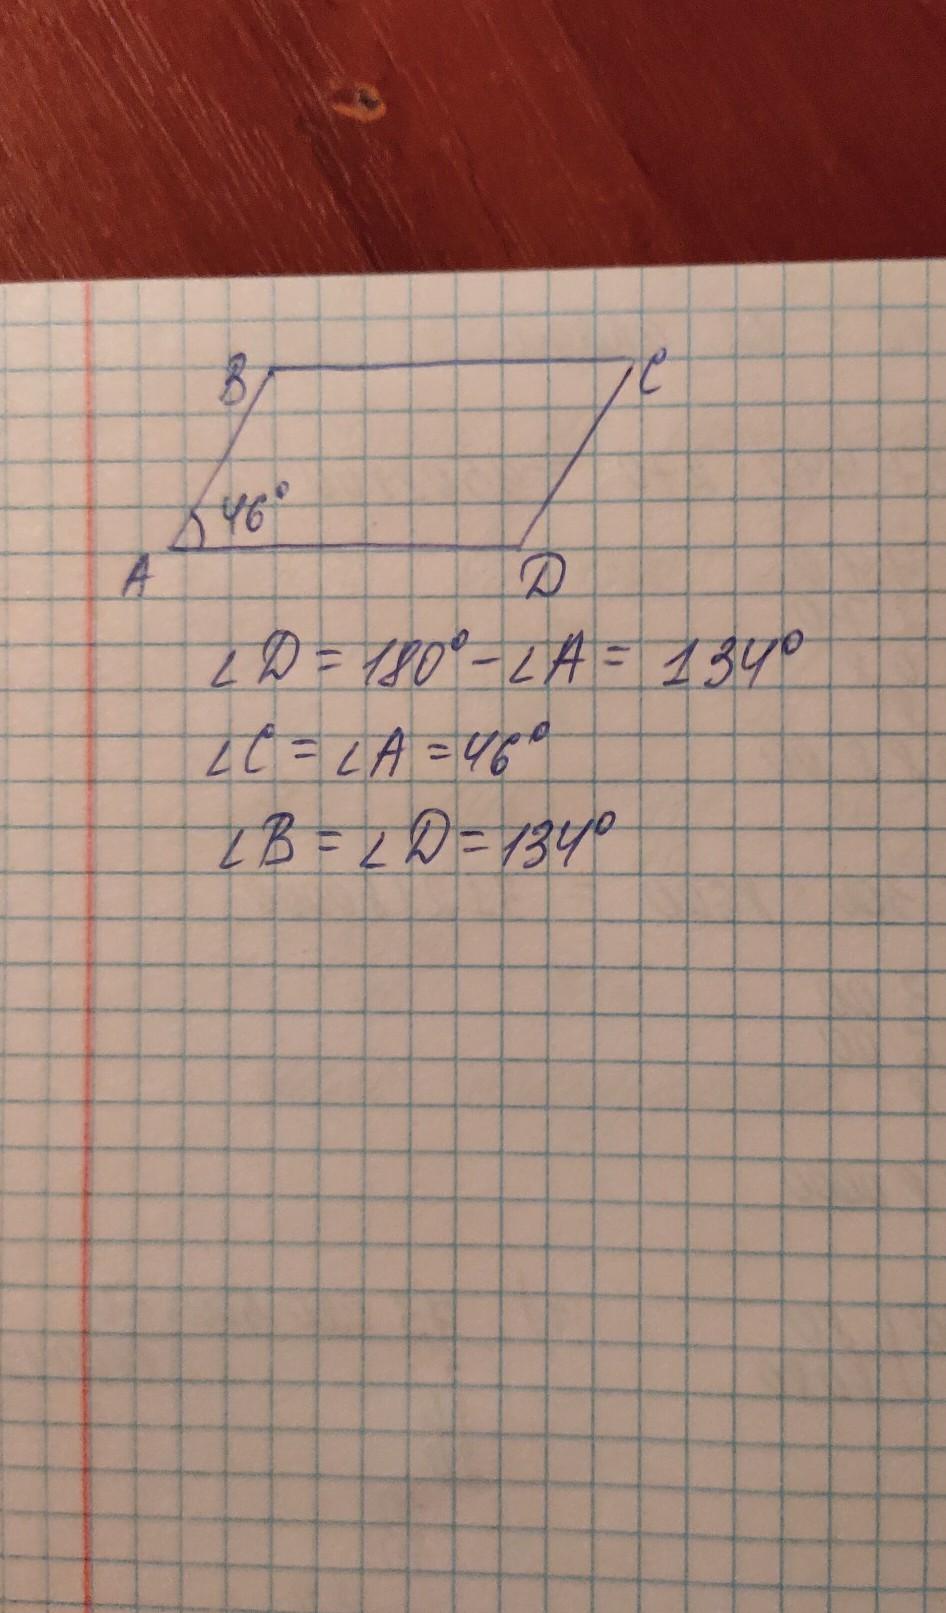 B C
46°
A D
∠D = 180° - ∠A = 134°
∠C = ∠A = 46°
∠B = ∠D = 134°